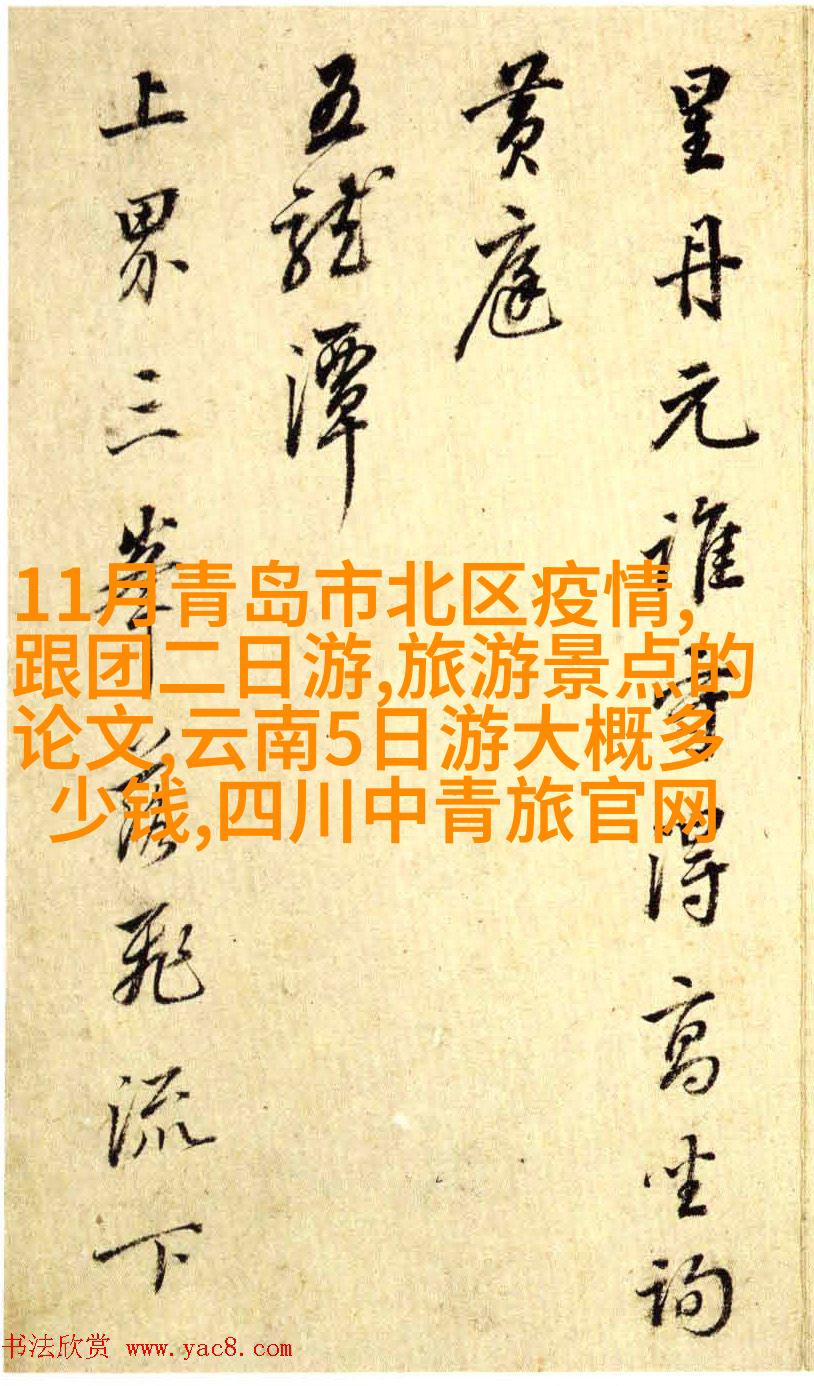 星丹元誰云得高坐詢
黄庭
五龍潭
上界三峯落飛流下
11月青岛市北区疫情,
跟团二日游,旅游景点的
论文,云南5日游大概多
少钱,四川中青旅官网
书法欣赏 www.yac8.com